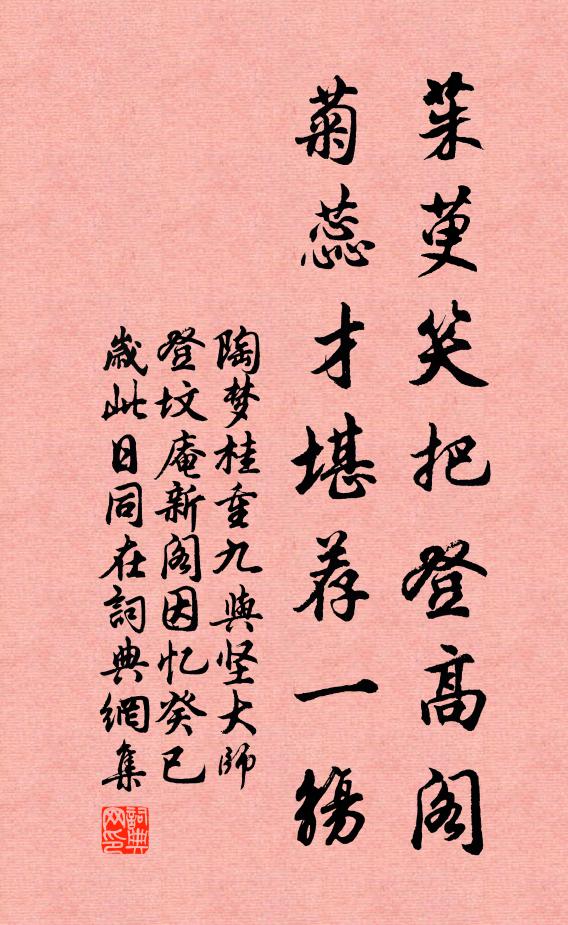 茱萸笑把登高阁
菊蕊才堪荐一觞
陶梦桂重九與坚大师
登坟庵新阁因忆癸巳
歲此日同在詞典網集
詞典
网印